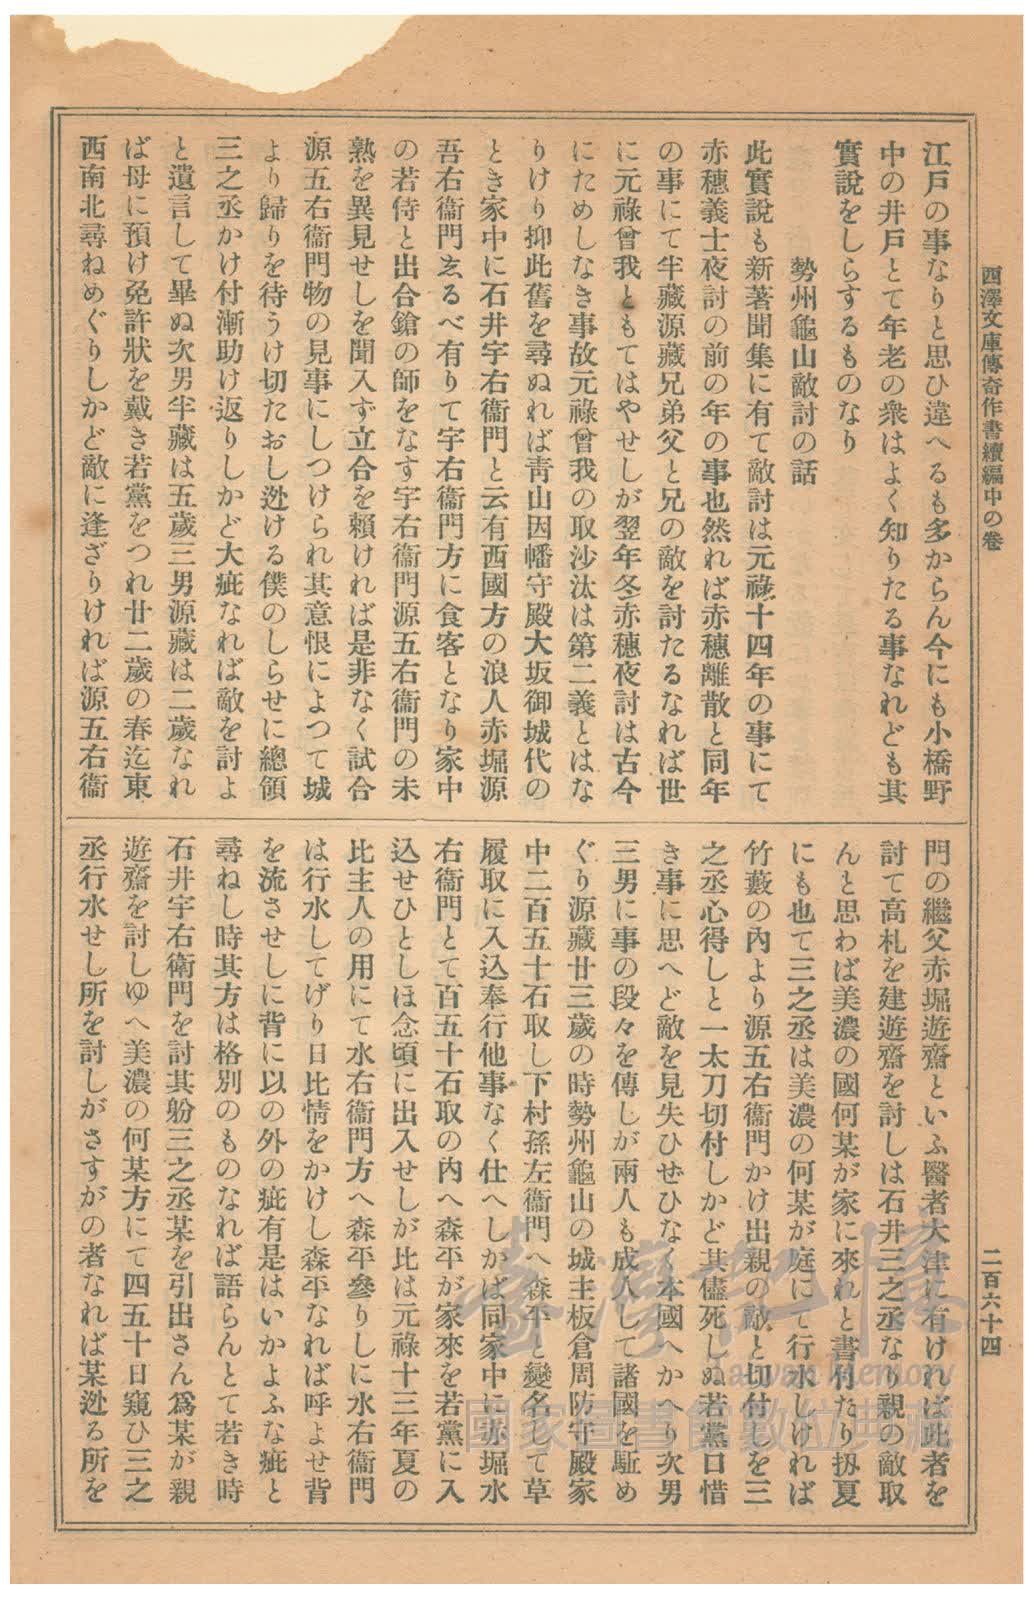 西澤文庫傳奇作書續編中の卷
二百六十四
江戸の事なりと思ひ違へるも多からん今にも小橋野
中の井戸とて年老の衆はよく知りたる事なれども其
實說をしらするものなり
勢州龜山敵討の話
此實說も新著聞集に有て敵討は元祿十四年の事にて
赤穗義士夜討の前の年の事也然れば赤穗離散と同年
の事にて半藏源藏兄弟父と兄の敵を討たるなれば世
に元祿曾我ともてはやせしが翌年冬赤穗夜討は古今
にためしなき事故元祿曾我の取沙汰は第二義とはな
りけり抑此舊を尋ぬれば靑山因幡守殿大坂御城代の
とき家中に石井宇右衞門と云有西國方の浪人赤堀源
吾右衞門ゑるべ有りて宇右衞門方に食客となり家中
の若侍と出合鎗の師をなす宇右衞門源五右衞門の未
熟を異見せしを聞入ず立合を賴ければ是非なく試合
源五右衞門物の見事にしつけられ其意恨によつて城
より歸りを待うけ切たおし迯ける僕のしらせに總領
三之丞かけ付漸助け返りしかど大疵なれば敵を討よ
と遺言して畢ぬ次男半藏は五歲三男源藏は二歲なれ
ば母に預け免許狀を戴き若黨をつれ廿二歲の春迄東
西南北尋ねめぐりしかど敵に逢ざりければ源五右衞
門の繼父赤堀遊齋といふ醫者大津に有ければ此者を
討て高札を建遊齋を討しは石井三之丞なり親の敵取
んと思わば美濃の國何某が家に來れと書付たり扨夏
にも也て三之丞は美濃の何某が庭にて行水しければ
竹藪の內より源五右衞門かけ出親の敵と切付しを三
之丞心得しと一太刀切付しかど其儘死しぬ若黨口惜
き事に思へど敵を見失ひせひなく本國へかへり次男
三男に事の段々を傳しが兩人も成人して諸國を駈め
ぐり源藏廿三歲の時勢州龜山の城主板倉周防守殿家
中二百五十石取し下村孫左衞門へ森平と變名して草
履取に入込奉行他事なく仕へしかば同家中に赤堀水
右衞門とて百五十石取の內へ森平が家來を若黨に入
込せひとしほ念頃に出入せしが比は元祿十三年夏の
比主人の用にて水右衞門方へ森平參りしに水右衞門
は行水してげり日比情をかけし森平なれば呼よせ背
を流させしに背に以の外の疵有是はいかよふな疵と
尋ねし時其方は格別のものなれば語らんとて若き時
石井宇右衛門を討其躮三之丞某を引出さん爲某が親
遊齋を討しゆへ美濃の何某方にて四五十日窺ひ三之
丞行水せし所を討しがさすがの者なれば某迯る所を
臺灣記憶
Taiwan Memory
國家圖書館數位典藏